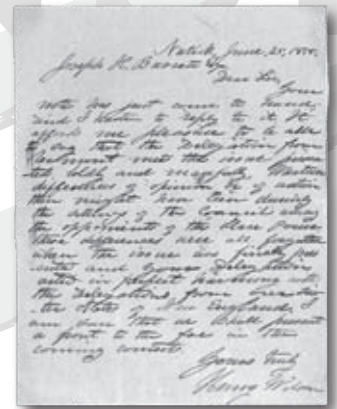 Natick, June, 25, 1855.
Joseph H. Barrett Esq
Dear Sir,
Your
note has just come to hand,
and I hasten to reply to it. It
affords me pleasure to be able
to say that the Delegation from
Vermont met the issue presen
ted boldly and manfully. Whatever
differences of opinion or of action
there might have been during
the sitting of the Council among
the opponents of the Slave Power
those differences were all forgotten
when the issue was finally pre
sented and your Delegation
acted in perfect harmony with
the Delegations from
the States of New England. I
am sure that we shall present
a front to the foe in the
coming contest.
Yours truly
Henry Wilson